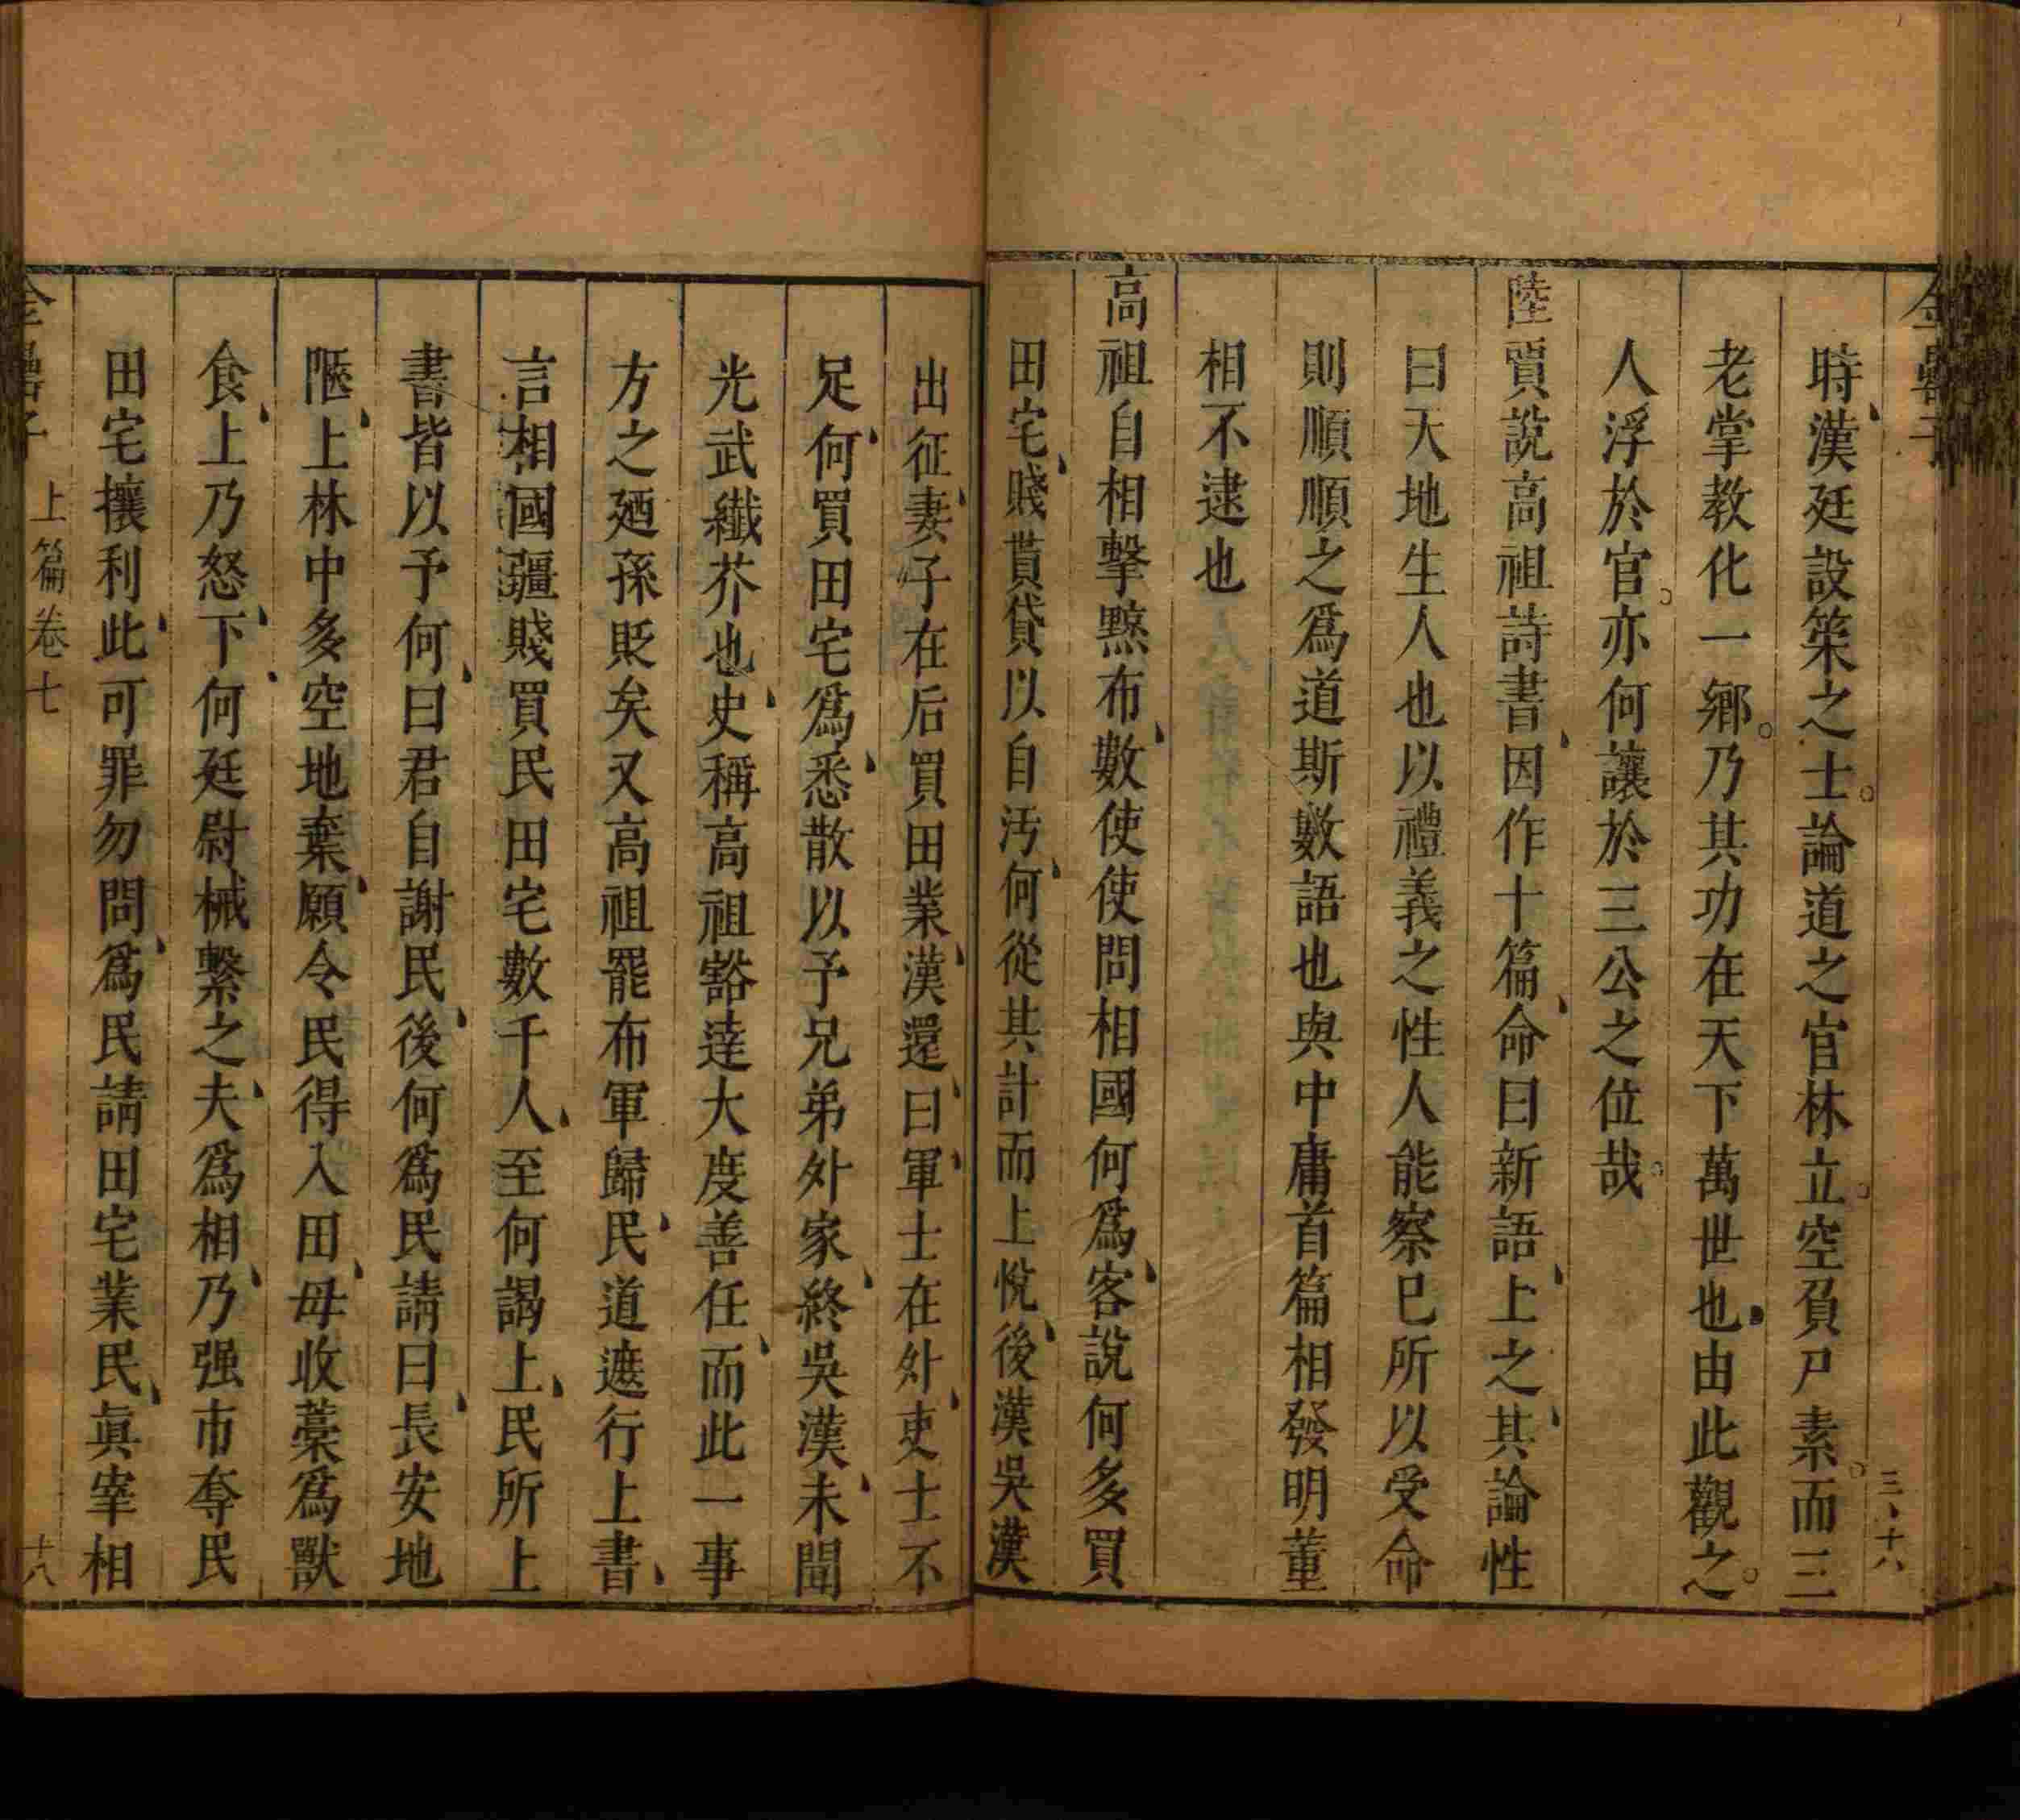 時漢廷設策之士論道之官林立空負尸素而三
老掌教化一鄉乃其功在天下萬世也由此觀之
人浮於官亦何讓於三公之位哉
陸賈說高祖詩書因作十篇命曰新語上之其論性
曰天地生人也以禮義之性人能察巳所以受命
則順順之爲道斯數語也與中庸首篇相發明董
相不逮也
高祖自相擊黥布數使使問相國何爲客說何多買
田宅賤貰貸以自汚何從其計而上悅後漢吳漢
出征妻子在后買田業漢還曰軍士在外吏士不
足何買田宅爲悉散以予兄弟外家終吳漢未聞
光武纖芥也史稱高祖豁達大度善任而此一事
方之廼孫貶矣又高祖罷布軍歸民道遮行上書
言相國彊賤買民田宅數千人至何謁上民所上
書皆以予何曰君自謝民後何爲民請曰長安地
陿上林中多空地棄願令民得入田毋收藁爲獸
食上乃怒下何廷尉械繫之夫爲相乃强市奪民
田宅攘利此可罪勿問爲民請田宅業民眞宰相
上篇卷七
十八